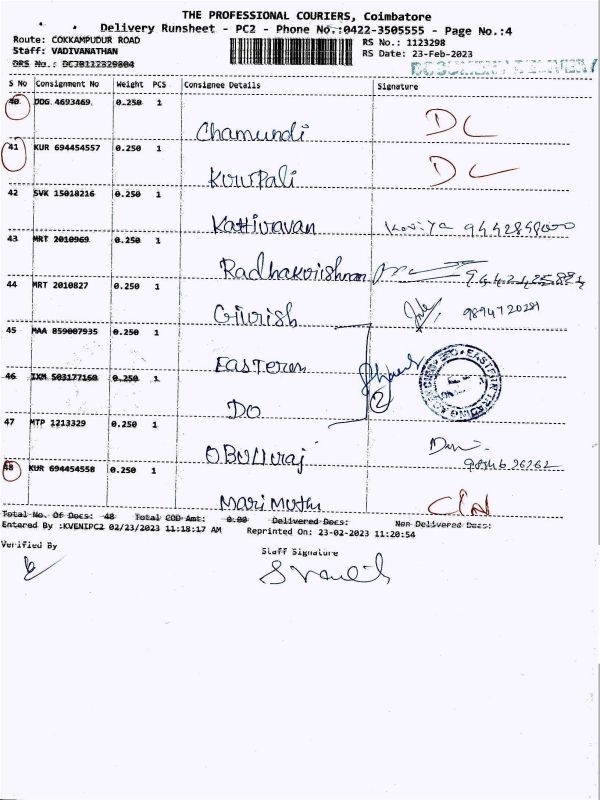 THE PROFESSIONAL COURIERS, Coimbatore
Delivery Runsheet - PC2 - Phone No.:0422-3505555 - Page No.:4
Route: COKKAMPUDUR ROAD
RS No.: 1123298
Staff: VADIVANATHAN
RS Date: 23-Feb-2023
DRS No.: DCJB112329804
DOCUMENT DELIVERY
S No Consignment No Weight PCS Consignee Details Signature
40 DDG 4693469 0.250 1
Chamundi DL
41 KUR 694454557 0.250 1
Kirupali DL
42 SVK 15018216 0.250 1
Kathiravan Kaviya
43 MRT 2010969 0.250 1
Radhakrishnan
44 MRT 2010827 0.250 1
Girish 9894720289
45 MAA 859007935 0.250 1
EASTERN
46 IXM 503177160 0.250 1
DO 2
EASTERN TRADING
47 MTP 1213329 0.250 1
OBULIraj
48 KUR 694454558 0.250 1
Mari Muthu
Total No. Of Docs: 48 Total COD Amt: 0.00 Delivered Docs: Non Delivered Docs:
Entered By :KVENIPC2 02/23/2023 11:18:17 AM Reprinted On: 23-02-2023 11:20:54
Verified By Staff Signature